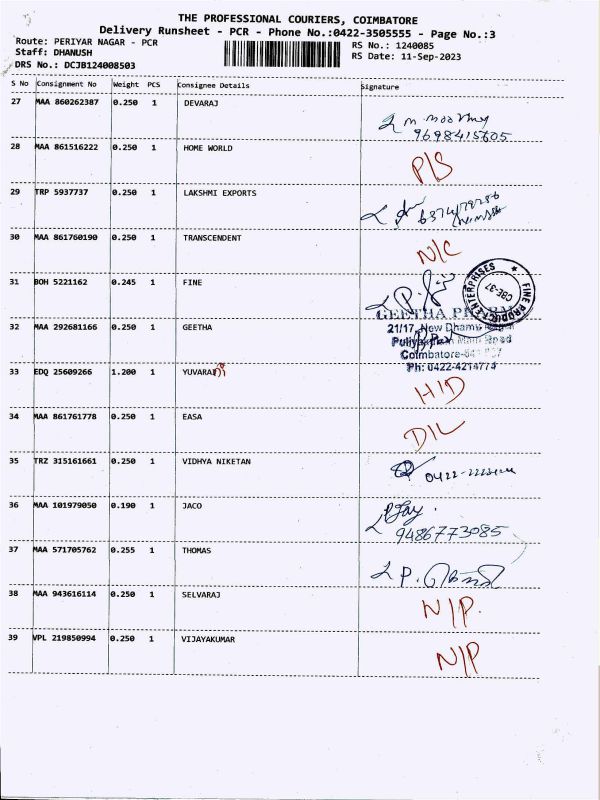 THE PROFESSIONAL COURIERS, COIMBATORE
Delivery Runsheet - PCR - Phone No.:0422-3505555 - Page No.:3
Route: PERIYAR NAGAR - PCR RS No.: 1240085
Staff: DHANUSH RS Date: 11-Sep-2023
DRS No.: DCJB124008503
S No Consignment No Weight PCS Consignee Details Signature
27 MAA 860262387 0.250 1 DEVARAJ
9698415605
28 MAA 861516222 0.250 1 HOME WORLD P/S
29 TRP 5937737 0.250 1 LAKSHMI EXPORTS
30 MAA 861760190 0.250 1 TRANSCENDENT N/C
31 BOH 5221162 0.245 1 FINE
FINE PRODUCT ENTERPRISES
CBE-37
32 MAA 292681166 0.250 1 GEETHA
GEETHA
21/17, New
Main Road
Coimbatore-641
Ph: 0422-4214774
33 EDQ 25609266 1.200 1 YUVARAJ H/D
34 MAA 861761778 0.250 1 EASA D/L
35 TRZ 315161661 0.250 1 VIDHYA NIKETAN
36 MAA 101979050 0.190 1 JACO
9486773085
37 MAA 571705762 0.255 1 THOMAS
38 MAA 943616114 0.250 1 SELVARAJ N/P.
39 VPL 219850994 0.250 1 VIJAYAKUMAR N/P